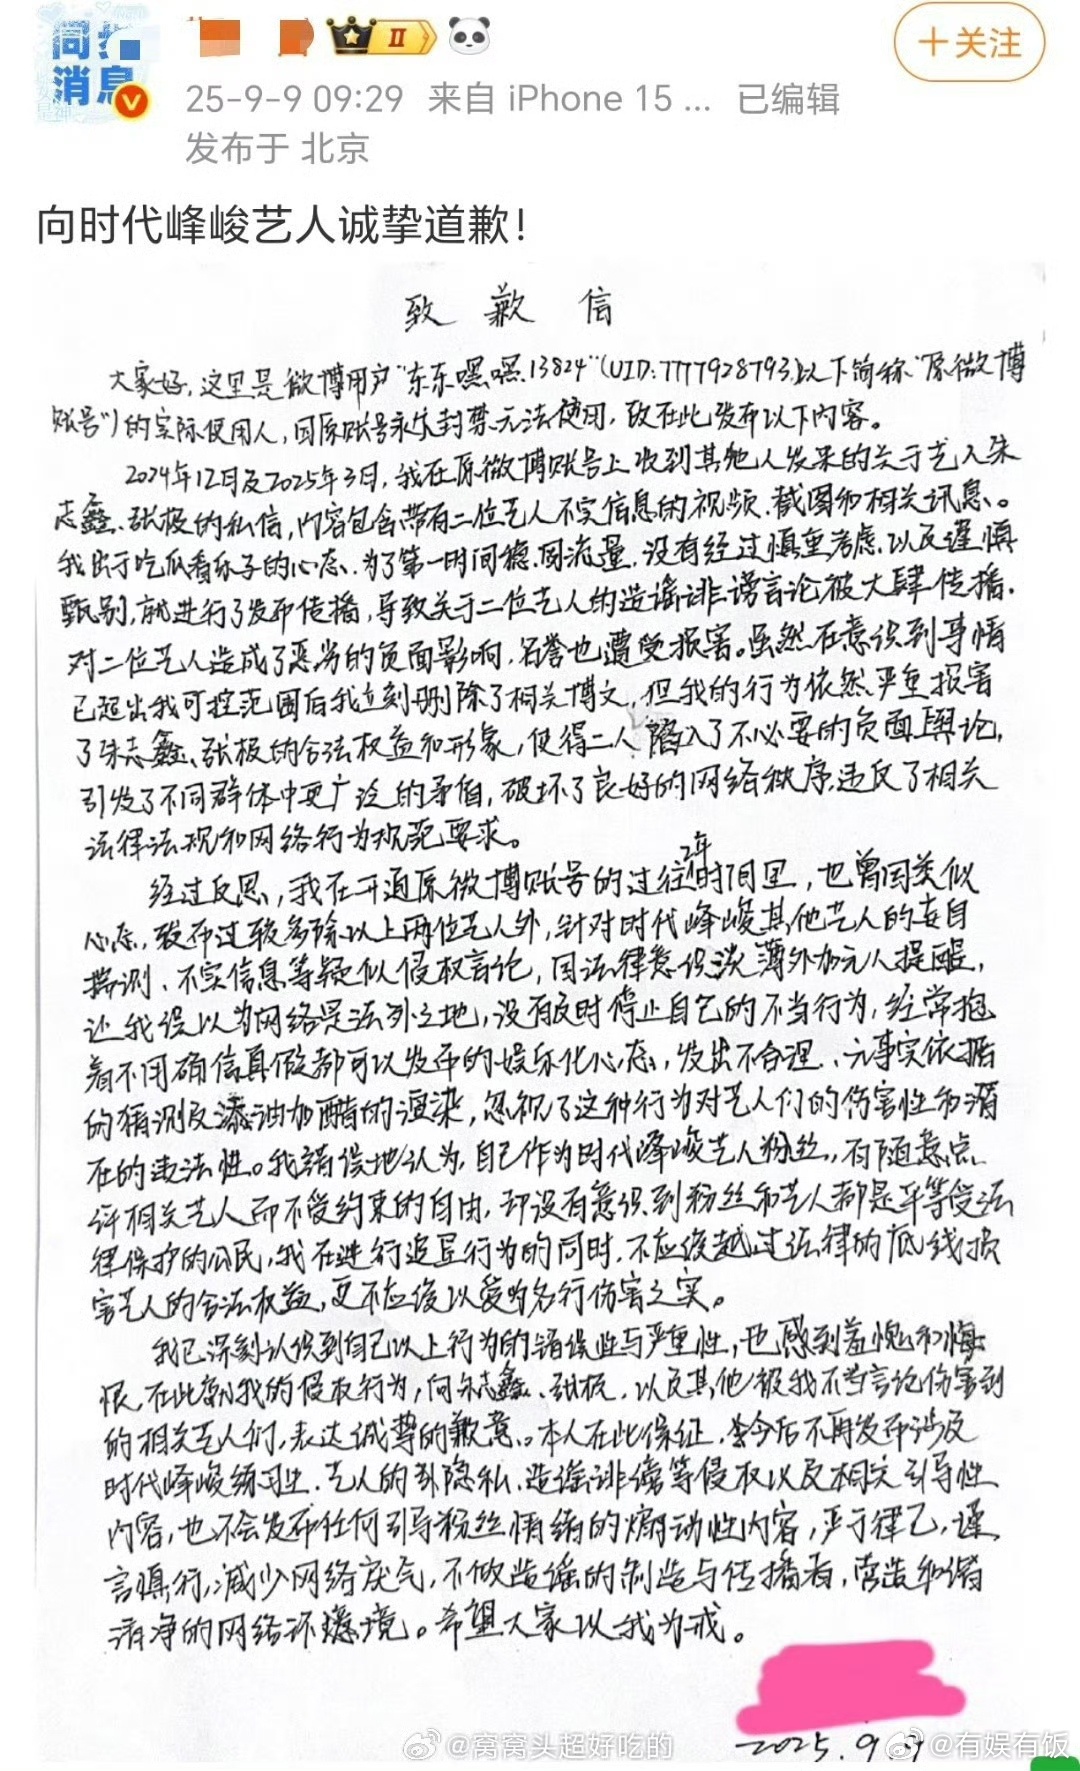 消息
II
+关注
25-9-9 09:29 来自 iPhone 15 ... 已编辑
发布于 北京
向时代峰峻艺人诚挚道歉!
致歉信
大家好,这里是微博用户“东东嘿嘿13824”(UID:7777928793,以下简称“原微博
账号”)的实际使用人,因原账号永久封禁无法使用,故在此发布以下内容。
2024年12月及2025年3月,我在原微博账号上收到其他人发来的关于艺人朱
志鑫、张极的私信,内容包含带有二位艺人不实信息的视频、截图和相关讯息。
我出于吃瓜看乐子的心态、为了第一时间稳固流量、没有经过慎重考虑、以及谨慎
甄别,就进行了发布传播,导致关于二位艺人的造谣诽谤言论被大肆传播,
对二位艺人造成了恶劣的负面影响,名誉也遭受损害。虽然在意识到事情
已超出我可控范围后我立刻删除了相关博文,但我的行为依然严重损害
了朱志鑫、张极的合法权益和形象,使得二人陷入了不必要的负面舆论,
引发了不同群体中更广泛的矛盾,破坏了良好的网络秩序,违反了相关
法律法规和网络行为规范要求。
经过反思,我在开通原微博账号的过往2年时间里,也曾因类似
心态,发布过较多除以上两位艺人外,针对时代峰峻其他艺人的妄自
揣测、不实信息等疑似侵权言论,因法律意识淡薄外加无人提醒,
让我误以为网络是法外之地,没有及时停止自己的不当行为,经常抱
着不用确信真假都可以发布的娱乐化心态,发出不合理、无事实依据
的猜测及添油加醋的渲染,忽视了这种行为对艺人们的伤害性和潜
在的违法性。我错误地认为,自己作为时代峰峻艺人粉丝,有随意点
评相关艺人而不受约束的自由,却没有意识到粉丝和艺人都是平等受法
律保护的公民,我在进行追星行为的同时,不应该越过法律的底线损
害艺人的合法权益,更不应该以爱为名行伤害之实。
我已深刻认识到自己以上行为的错误性与严重性,也感到羞愧和悔
恨,在此就我的侵权行为,向朱志鑫、张极,以及其他被我不当言论伤害到
的相关艺人们,表达诚挚的歉意。本人在此保证,今后不再发布涉及
时代峰峻练习生、艺人的私隐私、造谣诽谤等侵权以及相关引导性
内容,也不会发布任何引导粉丝情绪的煽动性内容,严于律己,谨
言慎行,减少网络戾气,不做造谣的制造与传播者,营造和谐
清净的网络环境。希望大家以我为戒。
2025.9.9
@窝窝头超好吃的
@有娱有饭